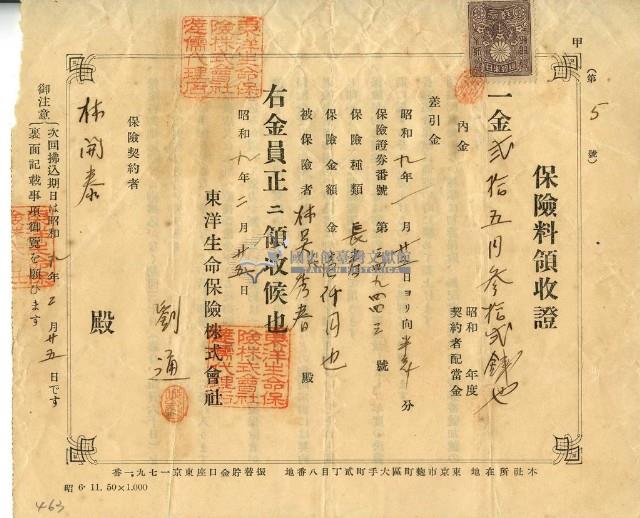 甲
(第 5 號)
保險料領收證
一金貳拾五円参拾貳錢也
內金
昭和 年度
契約者配當金
差引金
昭和九年一月廿 日ヨリ向半年分
保險證券番號 第 號
保險種類 長壽
保險金額 金 仟円也
被保險者 林吳 秀春 殿
右金員正ニ領收候也
昭和九年二月廿五日
東洋生命保險株式會社
劉通
東洋生命保
險株式會社
保險契約者
林開泰 殿
御注意
次回拂込期日は昭和九年 月廿五日です
裏面記載事項御覽を願ひます
本社所在地 東京市麴町區大手町貳丁目八番地 振替貯金口座東京一七九一番
昭 6. 11. 50×1.000
463
國史館臺灣文獻館
TAIWAN HISTORICA